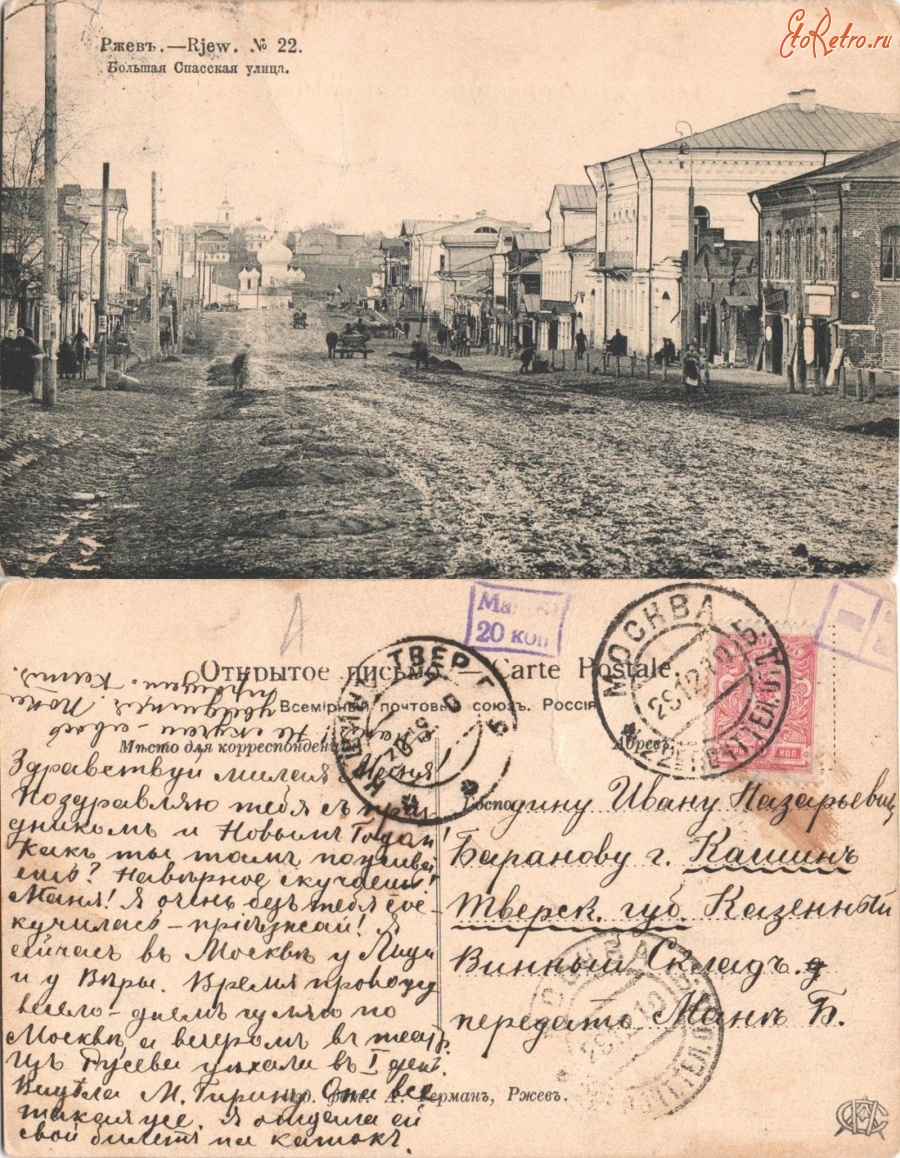 Ржевъ.—Rjew. № 22.
Большая Спасская улица.
EtoRetro.ru
20 коп
Открытое письмо. — Carte Postale
Всемірный почтовый союзъ. Россія
Мѣсто для корреспонденціи
Адресъ
МОСКВА
КАШИНЪ ТВЕР. Г.
Не скучай
Здравствуй милая Маня
Поздравляю тебя съ праз
дникомъ и Новымъ Годом!
Какъ ты тамъ поживва
ешь? Навѣрное скучаешь!
Маня! Я очень безъ тебя сос-
кучилась – пріѣзжай! Я
сейчасъ въ Москвѣ у Лизы
и у Вѣры. Время провожу
весело – днемъ гуляю по
Москвѣ, а вечеромъ въ театр.
Гусевы уѣхали въ I день.
Видѣла М. Она все
такая же. Я отдала ей
свой билетъ на катокъ.
Господину Ивану Назарьевич
Баранову г. Кашинъ
Тверск. губ. Казенный
Винный Складъ.
передать Манѣ Б.
А. Германъ, Ржевъ.